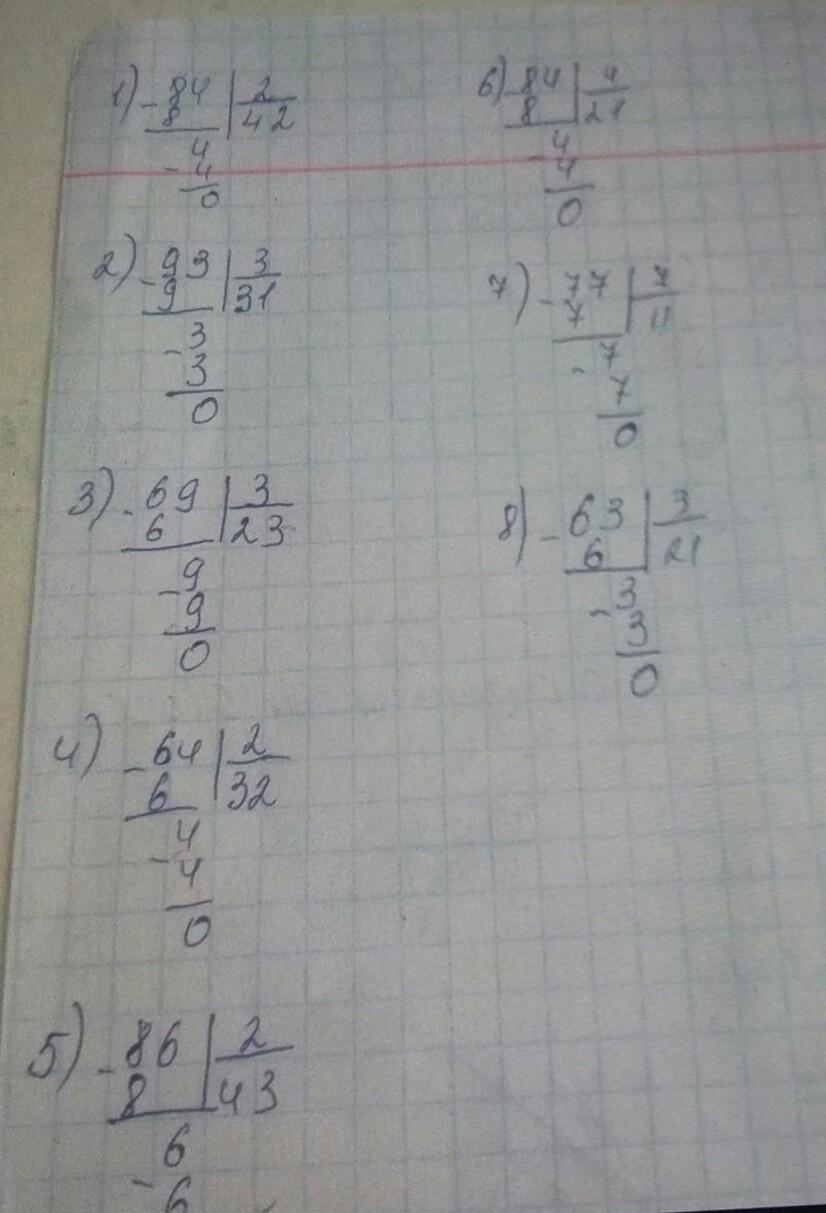 1) - 84 | 2
8 | 42
4
- 4
0
2) - 93 | 3
9 | 31
- 3
3
0
3) - 69 | 3
6 | 23
- 9
9
0
4) - 64 | 2
6 | 32
4
- 4
0
5) - 86 | 2
8 | 43
6
- 6
6) - 84 | 4
8 | 21
- 4
4
0
7) - 77 | 7
7 | 11
- 7
7
0
8) - 63 | 3
6 | 21
- 3
3
0